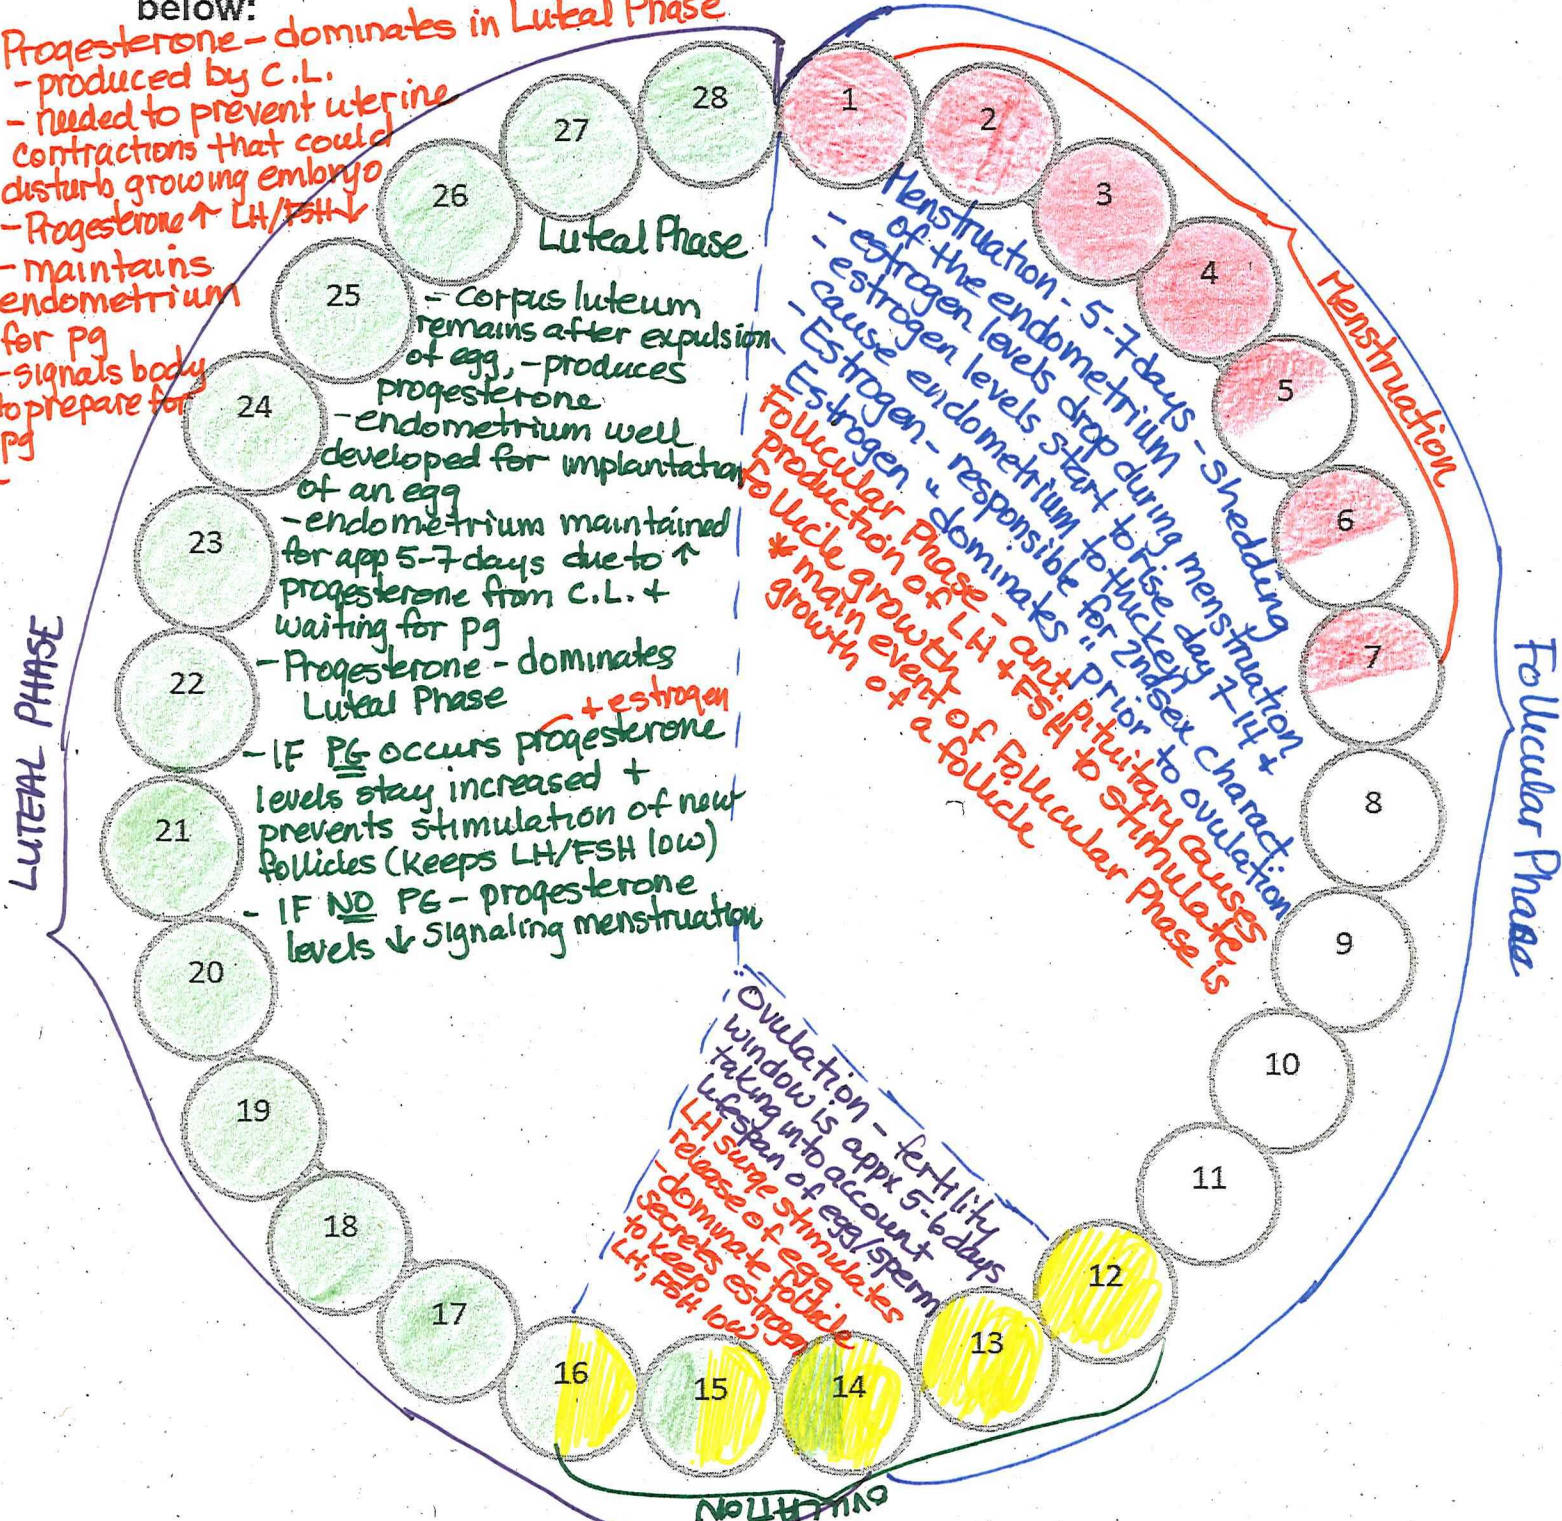 below:
Progesterone - dominates in Luteal Phase
- produced by C.L.
- needed to prevent uterine
contractions that could
disturb growing embryo
- Progesterone ↑ LH/FSH ↓
- maintains
endometrium
for pg
- signals body
to prepare for
pg
28
27
26
25
24
23
22
21
20
19
18
17
16
15
14
13
12
11
10
9
8
7
6
5
4
3
2
1
Luteal Phase
- corpus luteum
remains after expulsion
of egg, - produces
progesterone
- endometrium well
developed for implantation
of an egg
- endometrium maintained
for app 5-7 days due to ↑
progesterone from C.L. +
waiting for pg
- Progesterone - dominates
Luteal Phase
+ estrogen
- IF PG occurs progesterone
levels stay increased +
prevents stimulation of new
follicles (keeps LH/FSH low)
- IF NO PG - progesterone
levels ↓ signaling menstruation
Menstruation - 5-7 days - shedding
of the endometrium
- estrogen levels drop during menstruation
- estrogen levels start to rise day 7-14 +
cause endometrium to thicken
- Estrogen - responsible for 2nd sex charact.
- Estrogen "dominates" prior to ovulation
Follicular Phase - ant. pituitary causes
production of LH + FSH to stimulate
follicle growth
* main event of Follicular Phase is
growth of a follicle
Menstruation
Follicular Phase
LUTEAL PHASE
Ovulation - fertility
window is appx 5-6 days
taking into account
lifespan of egg/sperm
LH surge stimulates
release of egg
- dominate follicle
secretes estrogen
to keep
LH, FSH low
OVULATION